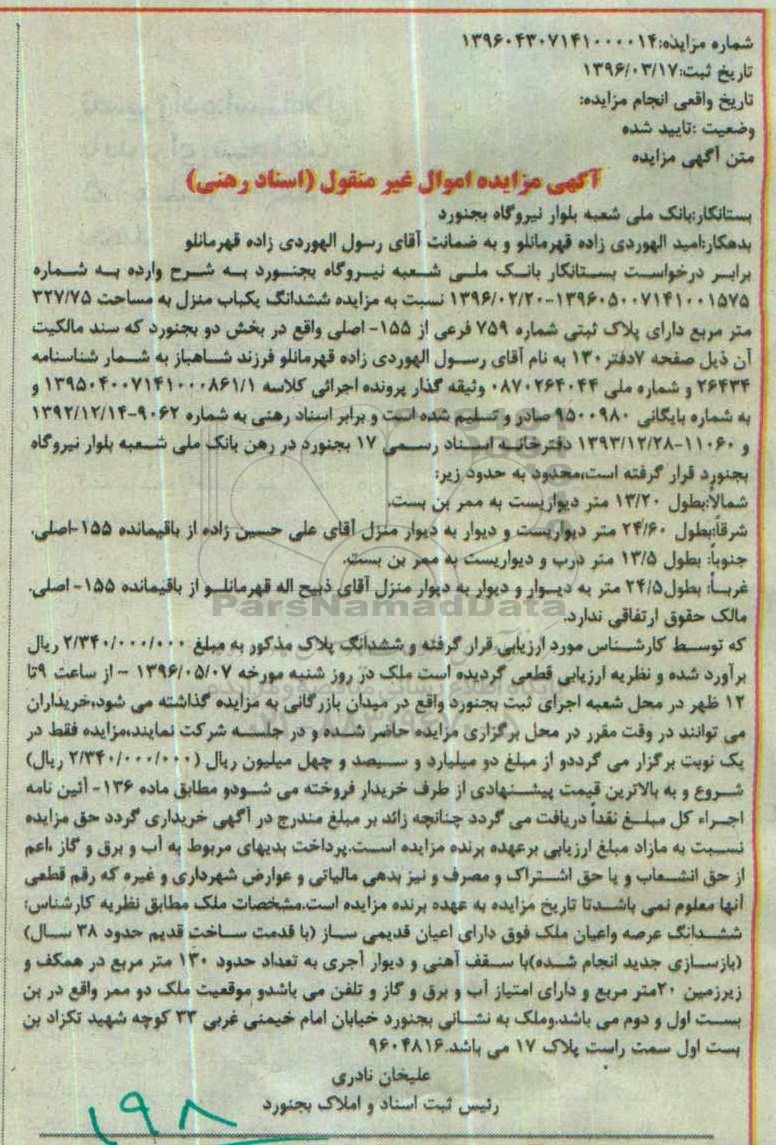 شماره مزایده:۱۳۹۶۰۴۳۰۷۱۴۱۰۰۰۰۱۴
تاریخ ثبت:۱۳۹۶/۰۳/۱۷
تاریخ واقعی انجام مزایده:
وضعیت :تایید شده
متن آگهی مزایده
آگهی مزایده اموال غیر منقول (اسناد رهنی)
بستانکار:بانک ملی شعبه بلوار نیروگاه بجنورد
بدهکار:امید الهوردی زاده قهرمانلو و به ضمانت آقای رسول الهوردی زاده قهرمانلو
برابر درخواست بستانکار بانک ملی شعبه نیروگاه بجنورد به شرح وارده به شماره
۱۳۹۶۰۵۰۰۷۱۴۱۰۰۱۵۷۵-۱۳۹۶/۰۲/۲۰ نسبت به مزایده ششدانگ یکباب منزل به مساحت ۳۲۷/۷۵
متر مربع دارای پلاک ثبتی شماره ۷۵۹ فرعی از ۱۵۵- اصلی واقع در بخش دو بجنورد که سند مالکیت
آن ذیل صفحه ۷دفتر۱۳۰ به نام آقای رسول الهوردی زاده قهرمانلو فرزند شاهباز به شمار شناسنامه
۲۶۴۳۴ و شماره ملی ۰۸۷۰۲۶۴۰۴۴ وثیقه گذار پرونده اجرائی کلاسه ۱۳۹۵۰۴۰۰۷۱۴۱۰۰۰۸۶۱/۱ و
به شماره بایگانی ۹۵۰۰۹۸۰ صادر و تسلیم شده است و برابر اسناد رهنی به شماره ۹۰۶۲-۱۳۹۲/۱۲/۱۴
و ۱۱۰۶۰-۱۳۹۳/۱۲/۲۸ دفترخانه اسناد رسمی ۱۷ بجنورد در رهن بانک ملی شعبه بلوار نیروگاه
بجنورد قرار گرفته است،محدود به حدود زیر:
شمالاً:بطول ۱۳/۲۰ متر دیواریست به ممر بن بست.
شرقاً:بطول ۲۴/۶۰ متر دیواریست و دیوار به دیوار منزل آقای علی حسین زاده از باقیمانده ۱۵۵-اصلی.
جنوباً: بطول ۱۳/۵ متر درب و دیواریست به ممر بن بست.
غرباً: بطول۲۴/۵ متر به دیوار و دیوار به دیوار منزل آقای ذبیح اله قهرمانلو از باقیمانده ۱۵۵- اصلی.
ParsNamadData
مالک حقوق ارتفاقی ندارد.
که توسط کارشناس مورد ارزیابی قرار گرفته و ششدانگ پلاک مذکور به مبلغ ۲/۳۴۰/۰۰۰/۰۰۰ ریال
برآورد شده و نظریه ارزیابی قطعی گردیده است ملک در روز شنبه مورخه ۱۳۹۶/۰۵/۰۷ - از ساعت ۹تا
۱۲ ظهر در محل شعبه اجرای ثبت بجنورد واقع در میدان بازرگانی به مزایده گذاشته می شود،خریداران
می توانند در وقت مقرر در محل برگزاری مزایده حاضر شده و در جلسه شرکت نمایند،مزایده فقط در
یک نوبت برگزار می گرددو از مبلغ دو میلیارد و سیصد و چهل میلیون ریال (۲/۳۴۰/۰۰۰/۰۰۰ ریال)
شروع و به بالاترین قیمت پیشنهادی از طرف خریدار فروخته می شودو مطابق ماده ۱۳۶- آئین نامه
اجراء کل مبلغ نقداً دریافت می گردد چنانچه زائد بر مبلغ مندرج در آگهی خریداری گردد حق مزایده
نسبت به مازاد مبلغ ارزیابی برعهده برنده مزایده است.پرداخت بدیهای مربوط به آب و برق و گاز ،اعم
از حق انشعاب و یا حق اشتراک و مصرف و نیز بدهی مالیاتی و عوارض شهرداری و غیره که رقم قطعی
آنها معلوم نمی باشدتا تاریخ مزایده به عهده برنده مزایده است.مشخصات ملک مطابق نظریه کارشناس:
ششدانگ عرصه واعیان ملک فوق دارای اعیان قدیمی ساز (با قدمت ساخت قدیم حدود ۳۸ سال)
(بازسازی جدید انجام شده)با سقف آهنی و دیوار آجری به تعداد حدود ۱۳۰ متر مربع در همکف و
زیرزمین ۲۰متر مربع و دارای امتیاز آب و برق و گاز و تلفن می باشدو موقعیت ملک دو ممر واقع در بن
بست اول و دوم می باشد.وملک به نشانی بجنورد خیابان امام خیمنی غربی ۳۳ کوچه شهید تکزاد بن
بست اول سمت راست پلاک ۱۷ می باشد.۹۶۰۴۸۱۶
علیخان نادری
رئیس ثبت اسناد و املاک بجنورد
۱۹۸